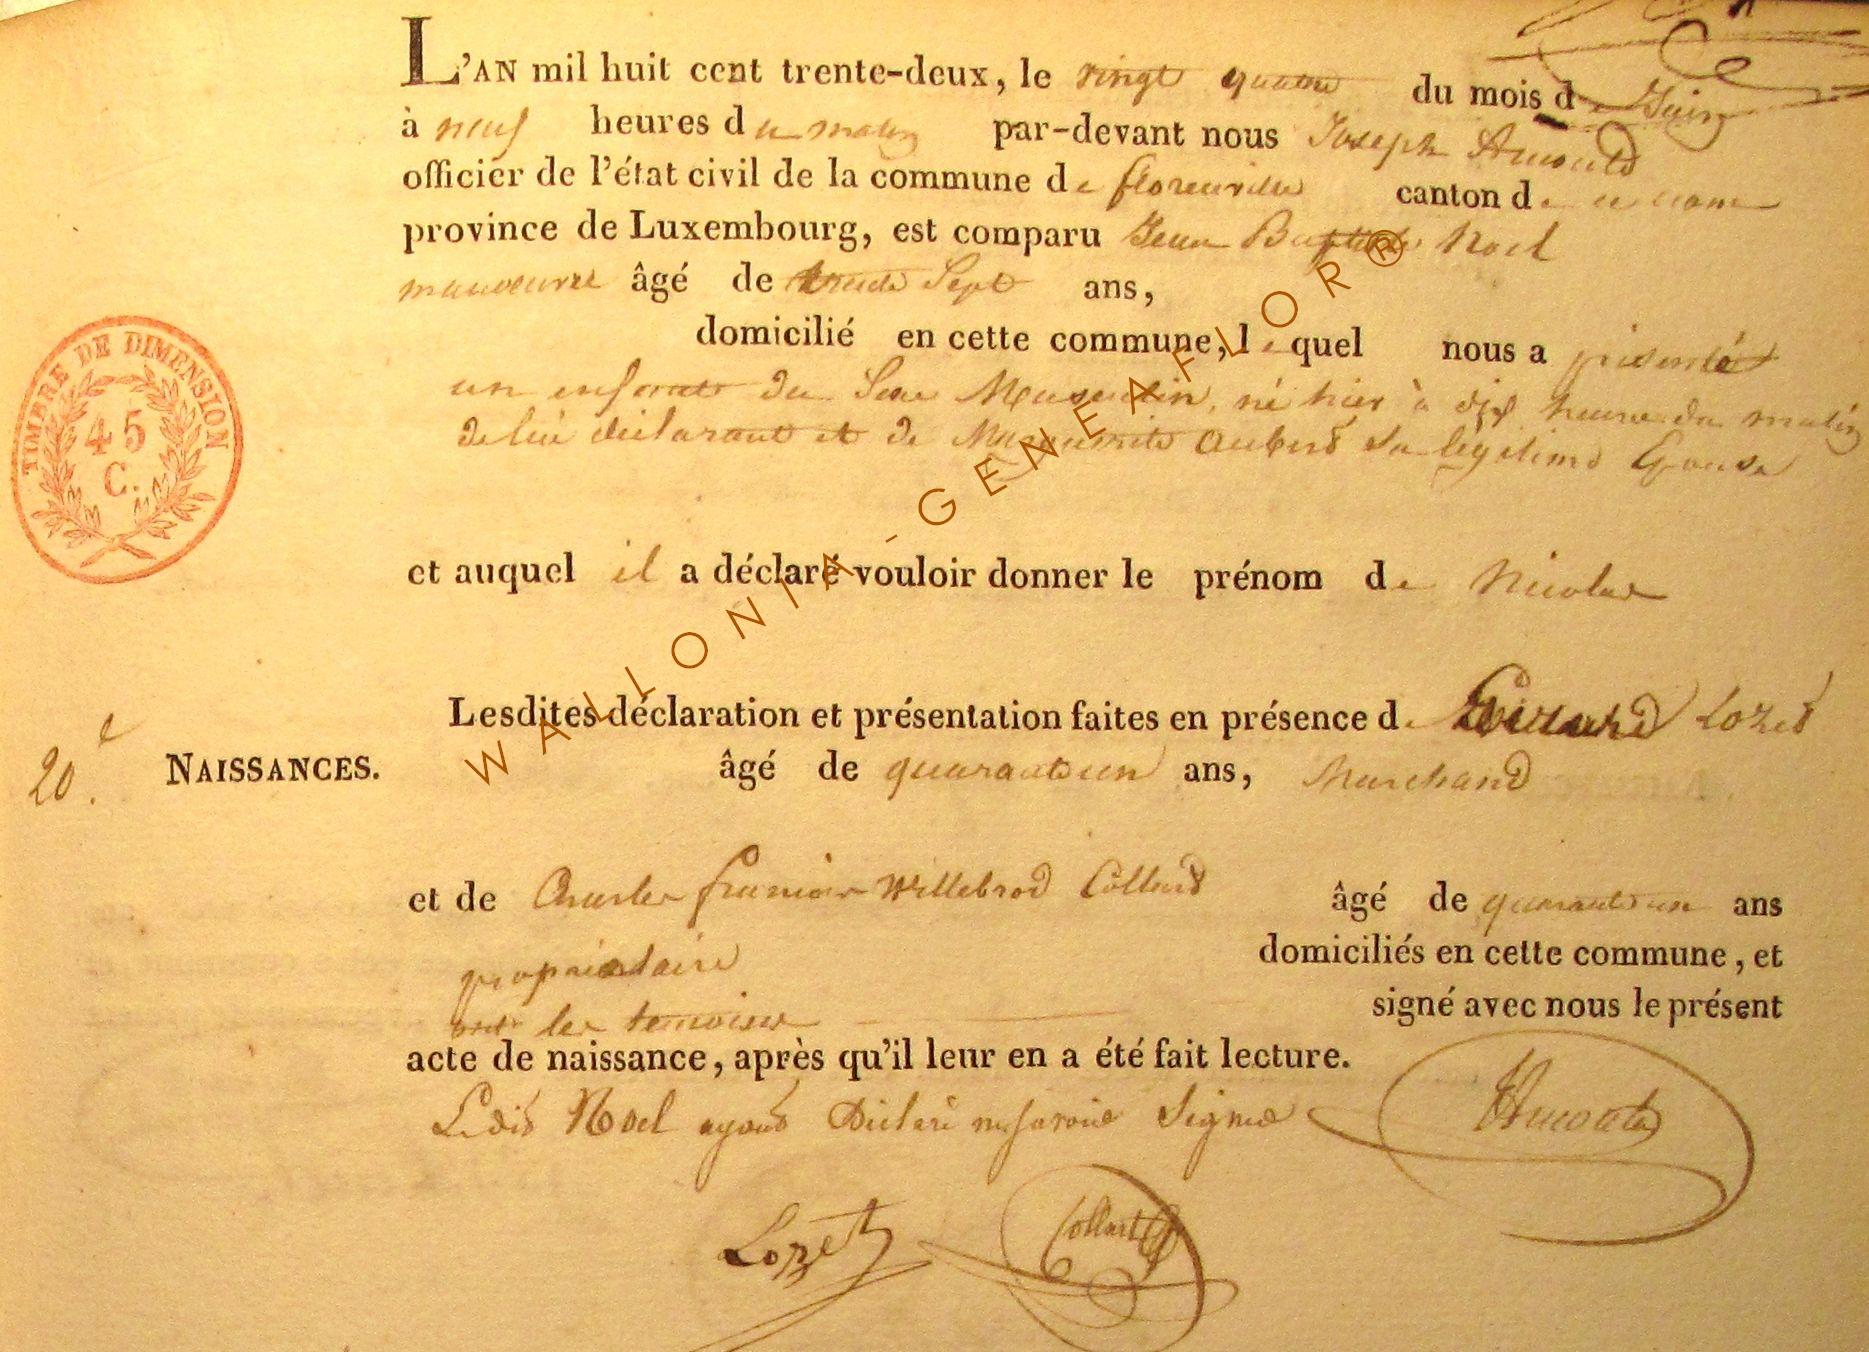 L'AN mil huit cent trente-deux, le vingt quatre du mois de Juin
à neuf heures du matin par-devant nous Joseph
officier de l'état civil de la commune de florenville canton de ce nom
province de Luxembourg, est comparu Jean Baptiste Noel
manoeuvre âgé de trente Sept ans,
domicilié en cette commune, lequel nous a présenté
un enfant du Sexe Masculin, né hier à dix heures du matin
de lui déclarant et de Marguerite Aubert Sa légitime Epouse
et auquel il a déclaré vouloir donner le prénom de Nicolas
Lesdites déclaration et présentation faites en présence de Lozet
20e NAISSANCES.
âgé de quarante un ans, Marchand
et de Charles françois Willebrod Collard âgé de quarante un ans
propriétaire domiciliés en cette commune, et
ont les temoins signé avec nous le présent
acte de naissance, après qu'il leur en a été fait lecture.
Ledit Noel ayant Déclaré ne savoir Signer
Lozet Collart
TIMBRE DE DIMENSION
45
C.
WALLONIA-GENEAFLOR®